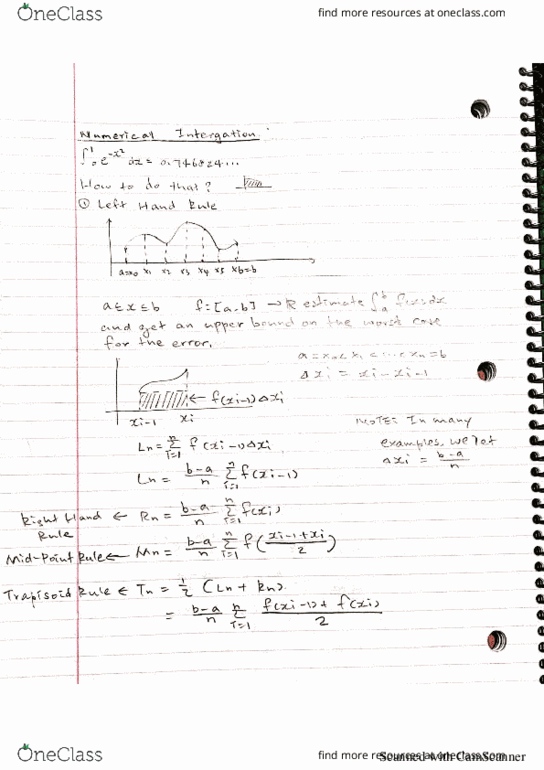 OneClass
find more resources at oneclass.com
Numerical Intergation
∫₀¹ e^-x² dx = 0.746824...
How to do that?
① Left Hand Rule
a=x0 x1 x2 x3 x4 x5 x6=b
a≤x≤b f:[a,b] → R estimate ∫ₐᵇ f(x)dx
and get an upper bound on the worst case
for the error.
a=x0<x1<...<xn=b
Δxi = xi-xi-1
← f(xi-1)Δxi
xi-1 xi
NOTE: In many
examples, we let
Δxi = (b-a)/n
Ln = Σ_{i=1}^{n} f(xi-1)Δxi
Ln = (b-a)/n Σ_{i=1}^{n} f(xi-1)
Right Hand Rule ← Rn = (b-a)/n Σ_{i=1}^{n} f(xi)
Mid-Point Rule ← Mn = (b-a)/n Σ_{i=1}^{n} f((xi-1+xi)/2)
Trapisoid Rule ← Tn = 1/2 (Ln + Rn).
= (b-a)/n Σ_{i=1}^{n} (f(xi-1) + f(xi))/2
OneClass
find more resources at oneclass.com
Scanned with CamScanner